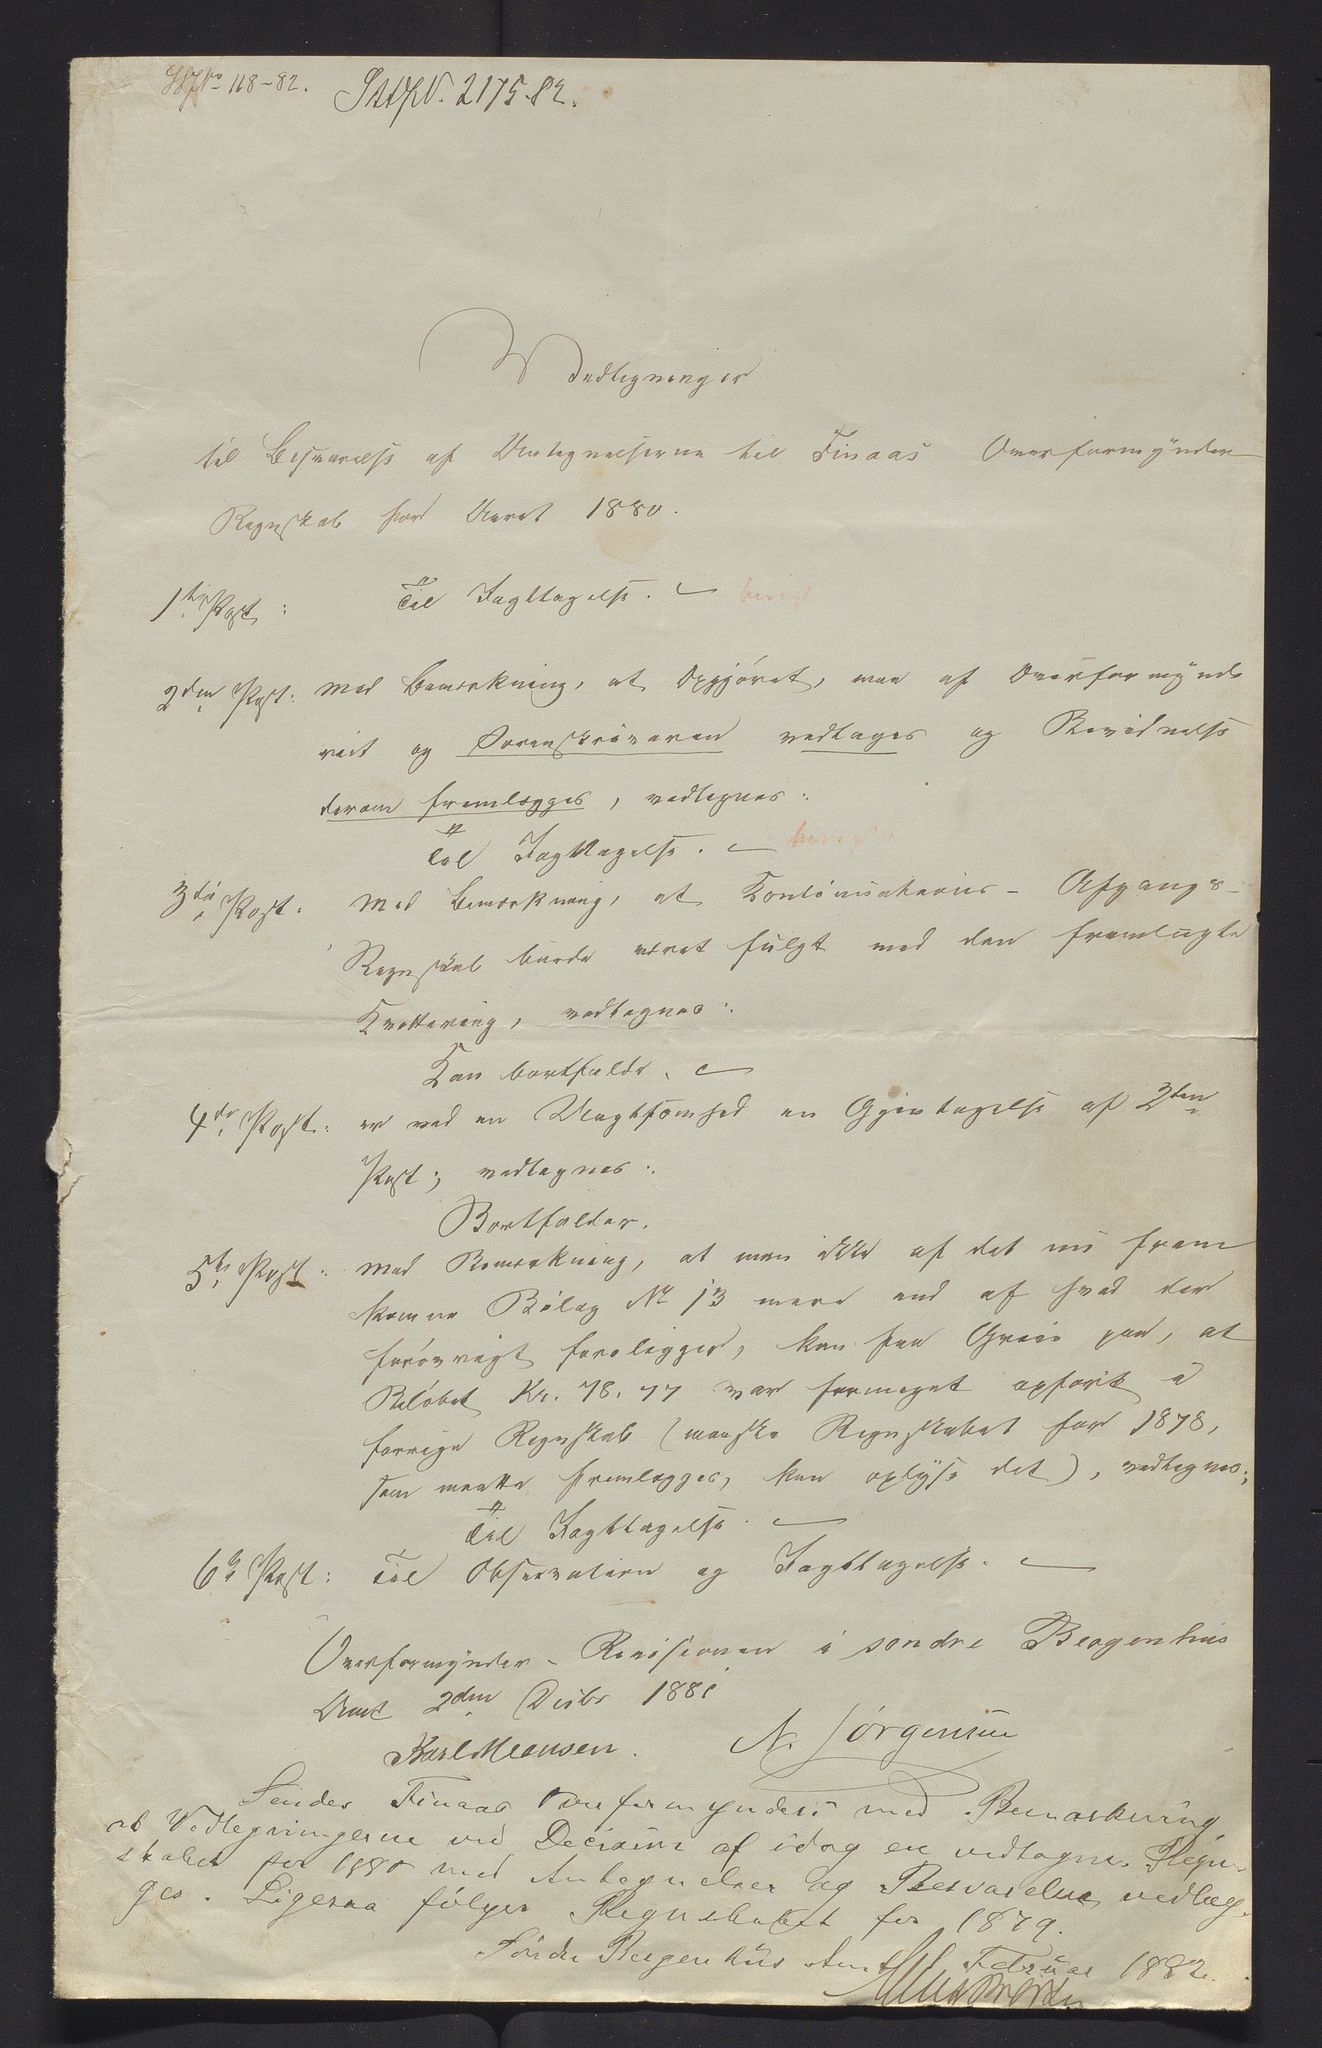 No 118-82. 2175.82.
Vedtegninger
til Besvarelse af Antegnelserne til Finaas Overformynder-
Regnskab for Aaret 1880.
1ste Post: Til Iagttagelse.
2den Post: med Bemærkning, at Opgjøret, maa af Overformynde
riet og Sorenskriveren vedtages og Bevidnelse
derom fremlægges, vedtegnes:
Til Iagttagelse.
3die Post: med Bemærkning, at Afgangs-
Regnskab burde været fulgt med den fremlagte
Kvittering, vedtegnes:
Kan bortfalde.
4de Post: er ved en Uagtsomhed en Gjentagelse af 2den
Post; vedtegnes:
Bortfalder.
5te Post: med Bemærkning, at man ikke af det nu frem
komne Bilag No 13 mere end af hvad der
forøvrigt foreligger, kan faa Greie paa, at
Beløbet Kr. 78.77 var formeget opført i
forrige Regnskab (maaske Regnskabet for 1878,
som maatte fremlægges, kan oplyse det), vedtegnes:
Til Iagttagelse.
6te Post: Til Observation og Iagttagelse.
Overformynder-Revisionen i søndre Bergenhus
Amt 2den Decbr 1881
Karl Monsen. N. Jørgensen
Sendes Finaas Overformynderi med Bemærkning
at Vedtegningerne ved Decision af idag er vedtagne. Regn-
skabet for 1880 med Antegnelser og Besvarelse vedlæg-
ges. Ligesaa følger Regnskabet for 1879.
Søndre Bergenhus Amt Februar 1882.